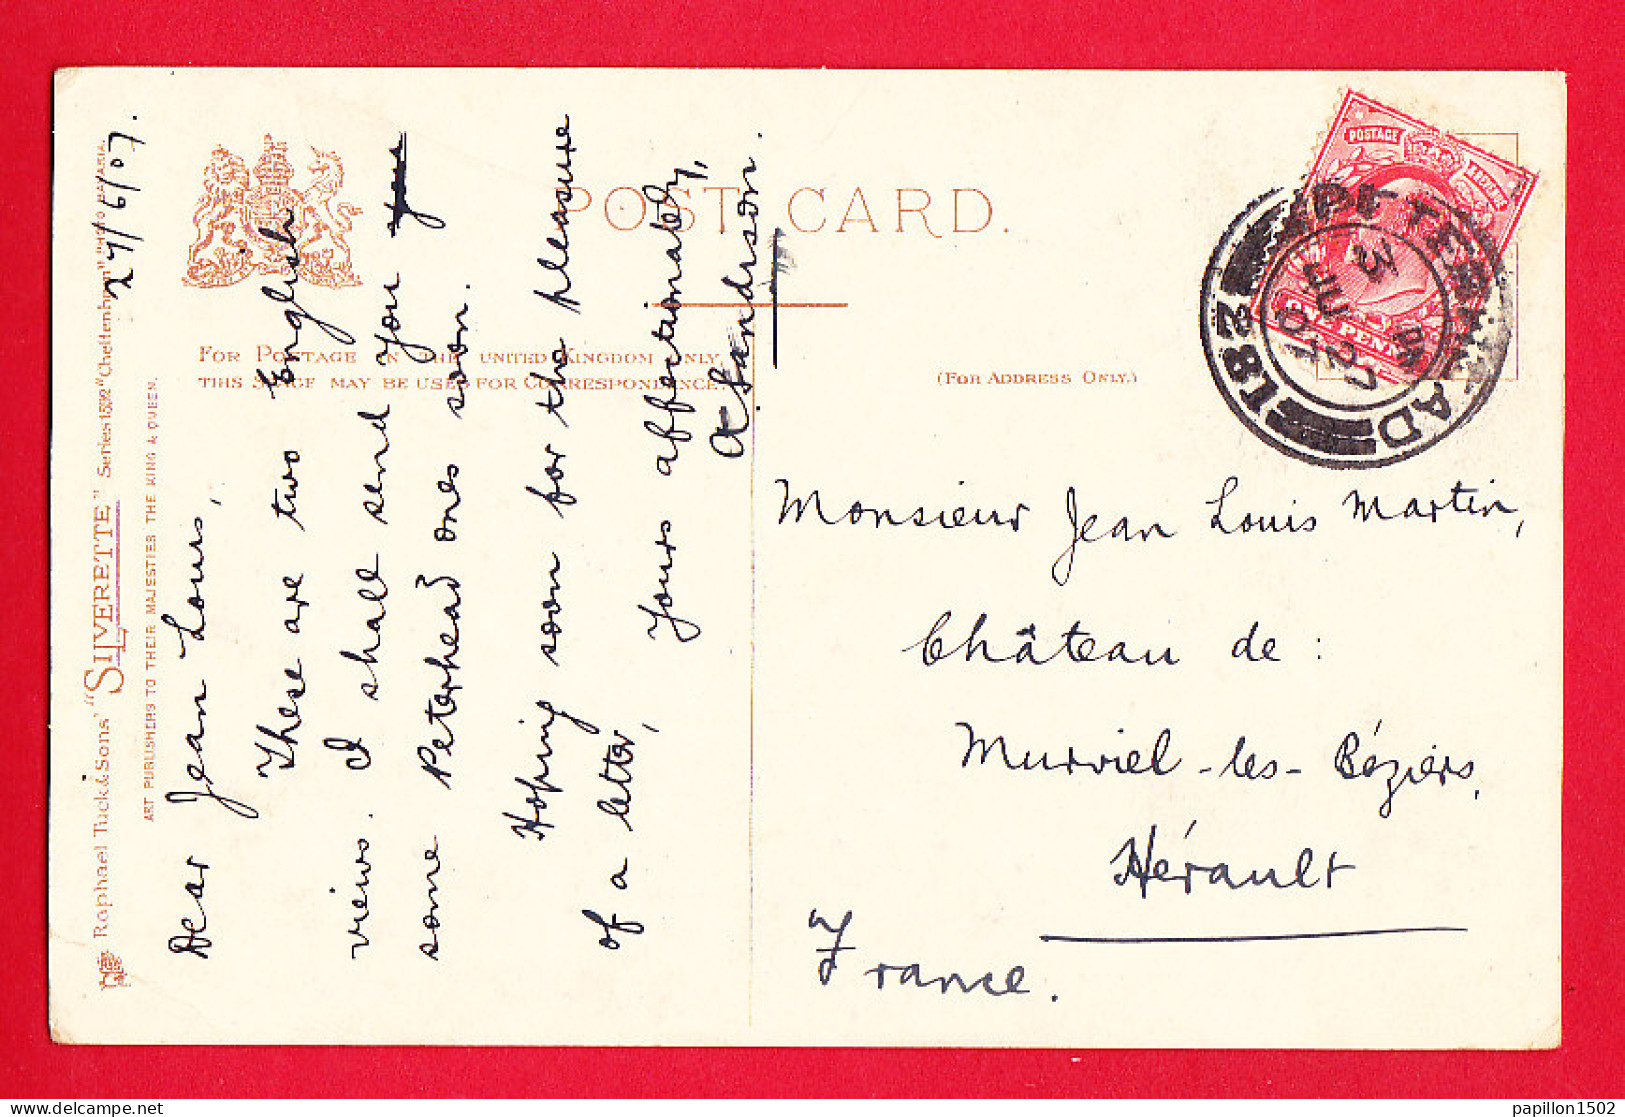 27/6/07.
Dear Jean Louis,
These are two English
views. I shall send you
some Peterhead ones soon.
Hoping soon for the pleasure
of a letter,
Yours affectionately,
A Sandison.
Raphael Tuck & Sons' "SILVERETTE" Series 1532 "Cheltenham"
ART PUBLISHERS TO THEIR MAJESTIES THE KING & QUEEN.
POST CARD.
FOR POSTAGE IN THE UNITED KINGDOM ONLY,
THIS SPACE MAY BE USED FOR CORRESPONDENCE
(FOR ADDRESS ONLY.)
POSTAGE REVENUE
ONE PENNY
PETERHEAD
3 PM
JU 27
07
281
Monsieur Jean Louis Martin,
Château de :
Murviel-les-Béziers,
Hérault
France.
papillon1502